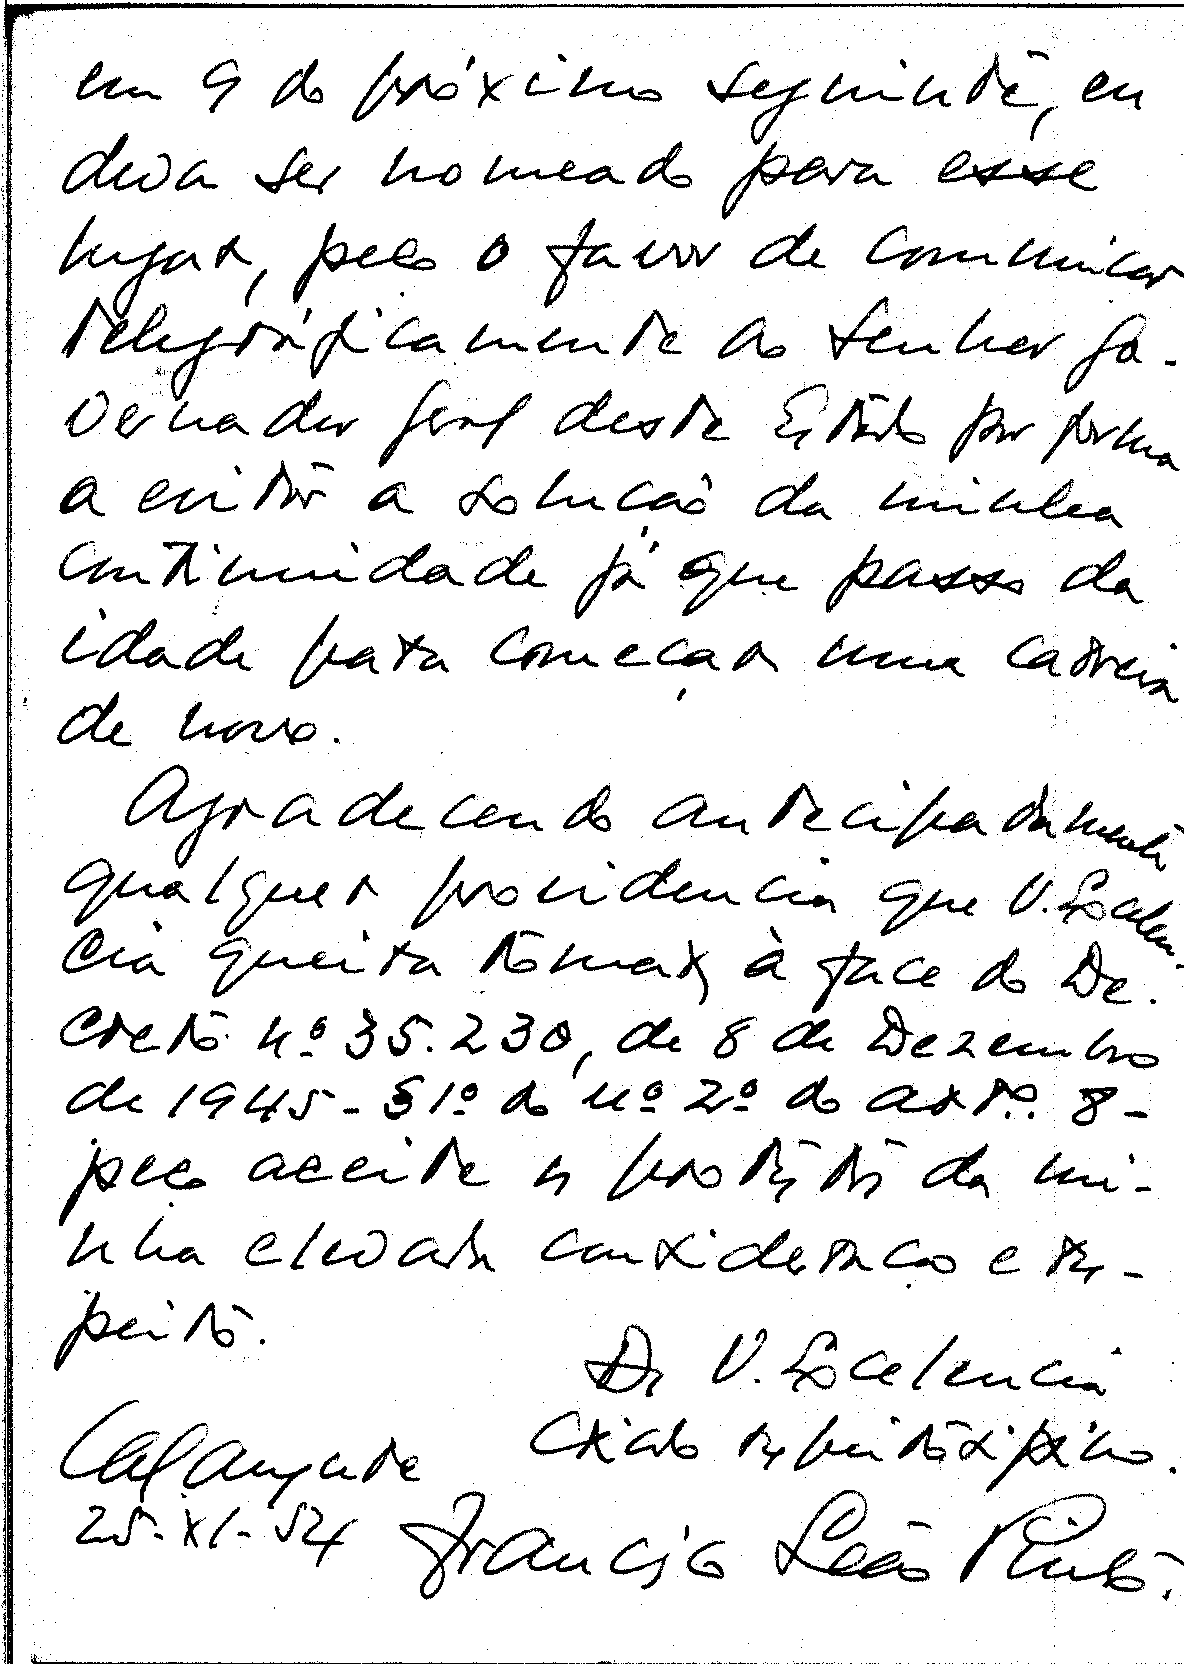 em 9 do próximo seguinte, eu
deva ser nomeado para esse
lugar, peço o favor de comunicar
telegráficamente ao Senhor Go-
vernador Geral deste Estado por forma
a evitar a solução da minha
continuidade já que passo da
idade para começar uma carreira
de novo.
Agradecendo antecipadamente
qualquer providencia que V. Excelen-
cia queira tomar, à face do De-
creto nº 35.230, de 8 de Dezembro
de 1945 - §1º do nº 2º do artº. 8 -
peço aceite os protestos da mi-
nha elevada consideração e res-
peito.
De V. Excelencia
Criado respeitosissimo.
Calangute
25-XI-54 Francisco Leão Pinto.